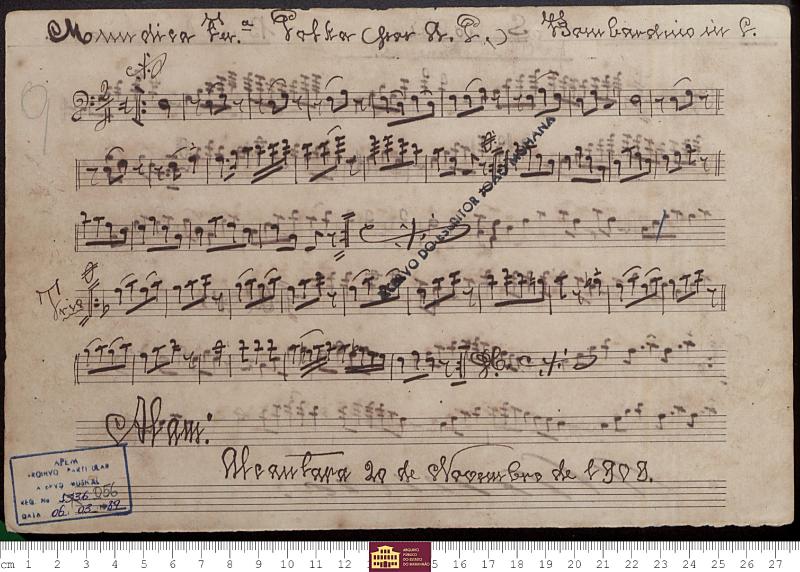 Polka (por A. P.) Bombardino in C.
ARQUIVO DO ESCRITOR JOÃO MOHANA
Trio
D.C.
Alcantara 20 de Novembro de 1908.
APEM
ARQUIVO PARTICULAR
ACERVO MUSICAL
REG. No 056
DATA 06. 03.
cm 1 2 3 4 5 6 7 8 9 10 11 12 13 5 16 17 18 19 20 21 22 23 24 25 26 27
ARQUIVO
PÚBLICO
DO ESTADO
DO MARANHÃO